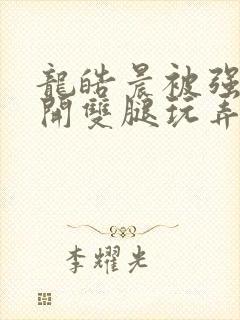 龍皓晨被强
開雙腿玩弄
李耀光